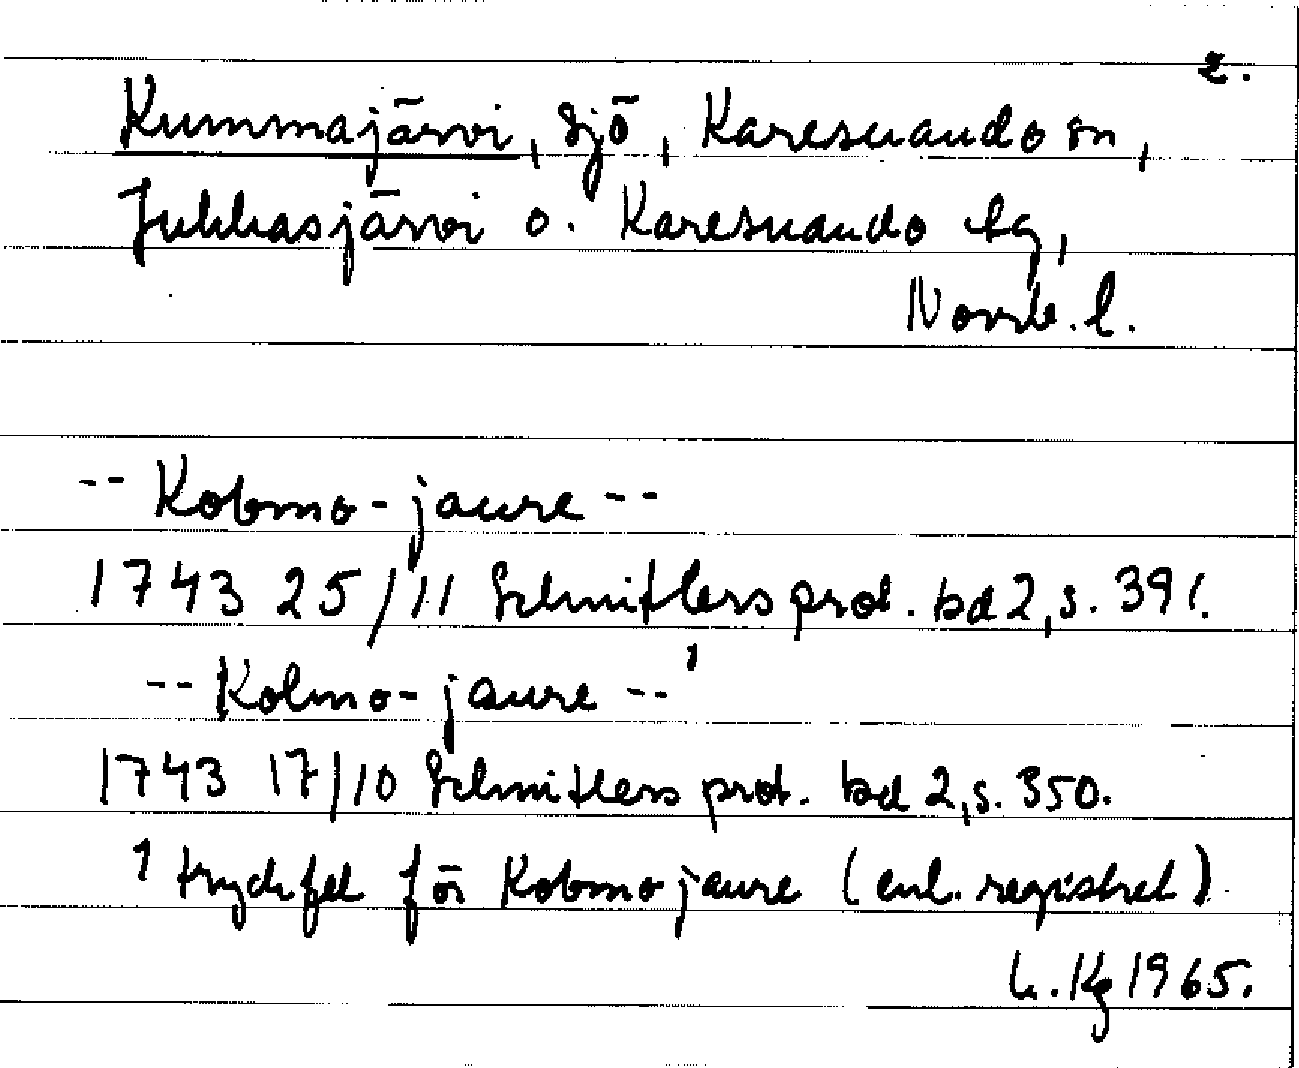 2.
Kummajärvi, sjö, Karesuando sn,
Jukkasjärvi o. Karesuando tg,
Norrb. l.
-- Kobmo-jaure --
1743 25/11 Schnitlers prot. bd 2, s. 391.
-- Kolmo-jaure --¹
1743 17/10 Schnitlers prot. bd 2, s. 350.
¹ tryckfel för Kobmojaure (enl. registret)
L. Kg 1965.